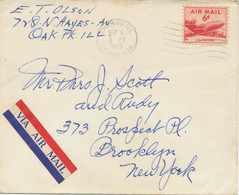 E. T. OLSON
728 N HAYES-AV
OAK PK. ILL
AIR MAIL
6¢
Mr & Mrs. J. Scott
and Rudy
373 Prospect Pl.
Brooklyn
New York
VIA AIR MAIL